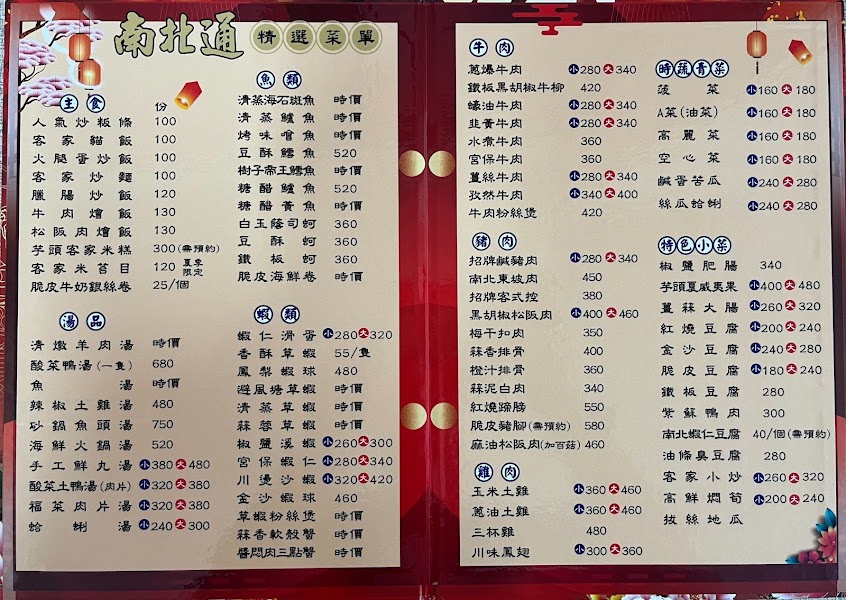 南北通 精選菜單
主食 份
人氣炒粄條 100
客家貓飯 100
火腿蛋炒飯 100
客家炒麵 100
臘腸炒飯 120
牛肉燴飯 130
松阪肉燴飯 130
芋頭客家米糕 300(需預約)
客家米苔目 120 夏季限定
脆皮牛奶銀絲卷 25/個
湯品
清燉羊肉湯 時價
酸菜鴨湯(一隻) 680
魚湯 時價
辣椒土雞湯 480
砂鍋魚頭湯 750
海鮮火鍋湯 520
手工鮮丸湯 小380大480
酸菜土鴨湯(肉片) 小320大380
福菜肉片湯 小320大380
蛤蜊湯 小240大300
魚類
清蒸海石斑魚 時價
清蒸鱸魚 時價
烤味噌魚 時價
豆酥鱈魚 520
樹子帝王鱈魚 時價
糖醋鱸魚 520
糖醋黃魚 時價
白玉蔭司蚵 360
豆酥蚵 360
鐵板蚵 360
脆皮海鮮卷 時價
蝦類
蝦仁滑蛋 小280大320
香酥草蝦 55/隻
鳳梨蝦球 480
避風塘草蝦 時價
清蒸草蝦 時價
蒜蓉草蝦 時價
椒鹽溪蝦 小260大300
宮保蝦仁 小280大340
川燙沙蝦 小320大420
金沙蝦球 460
草蝦粉絲煲 時價
蒜香軟殼蟹 時價
醬悶肉三點蟹 時價
牛肉
蔥爆牛肉 小280大340
鐵板黑胡椒牛柳 420
蠔油牛肉 小280大340
韭黃牛肉 小280大340
水煮牛肉 360
宮保牛肉 360
薑絲牛肉 小280大340
孜然牛肉 小340大400
牛肉粉絲煲 420
豬肉
招牌鹹豬肉 小280大340
南北東坡肉 450
招牌客式控 380
黑胡椒松阪肉 小400大460
梅干扣肉 350
蒜香排骨 400
橙汁排骨 360
蒜泥白肉 340
紅燒蹄膀 550
脆皮豬腳(需預約) 580
麻油松阪肉(加百菇) 460
雞肉
玉米土雞 小360大460
蔥油土雞 小360大460
三杯雞 480
川味鳳翅 小300大360
時蔬青菜
菠菜 小160大180
A菜(油菜) 小160大180
高麗菜 小160大180
空心菜 小160大180
鹹蛋苦瓜 小240大280
絲瓜蛤蜊 小240大280
特色小菜
椒鹽肥腸 340
芋頭夏威夷果 小400大480
薑蒜大腸 小260大320
紅燒豆腐 小200大240
金沙豆腐 小240大280
脆皮豆腐 小180大240
鐵板豆腐 280
紫蘇鴨肉 300
南北蝦仁豆腐 40/個(需預約)
油條臭豆腐 280
客家小炒 小260大320
高鮮燜筍 小200大240
拔絲地瓜